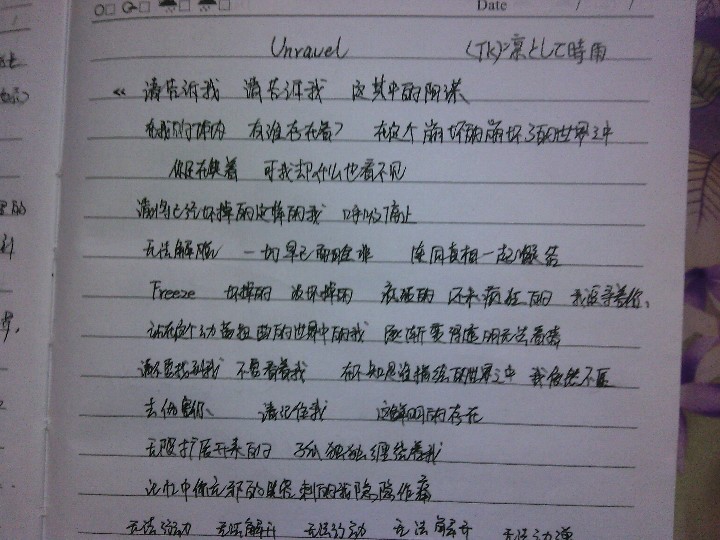 Date / /
Unravel (TK)凛として時雨
« 请告诉我 请告诉我 这其中的阴谋
在我的体内 有谁存在着? 在这个崩坏的崩坏了的世界之中
你还在笑着 可我却什么也看不见
请将已经坏掉的这样的我 呼吸停止
无法解脱 一切早已 连同真相一起
Freeze 坏掉的 破坏掉的 疯狂的 还未疯狂的 我追寻着你、
站在这个动摇扭曲的世界中的我 逐渐变得透明无法看清
请不要找到我 不要看着我 在不知是谁描绘的世界之中 我依然不愿
去伤害你、 请记住我 这鲜明的存在
无限扩展开来的 孤独 缠绕着我
记忆中你无邪的笑容 刺的我隐隐作痛
无法行动 无法解开 无法行动 无法解开 无法动弹